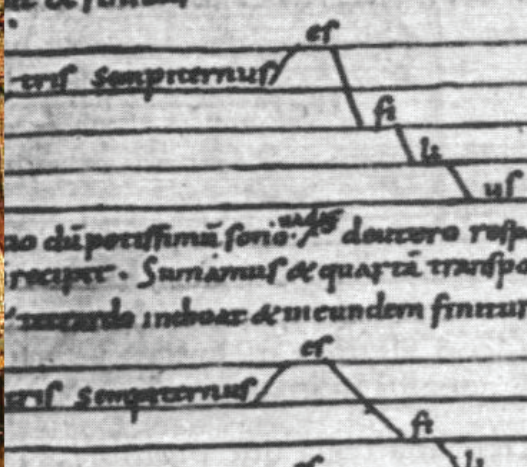 es
tris sempiternus
fi
li
us
dū potissimū deutero resp
recipit. Sumamus & quartā transpo
tetrardo inchoat & in eundem finitur
es
tris sempiternus
fi
li
es